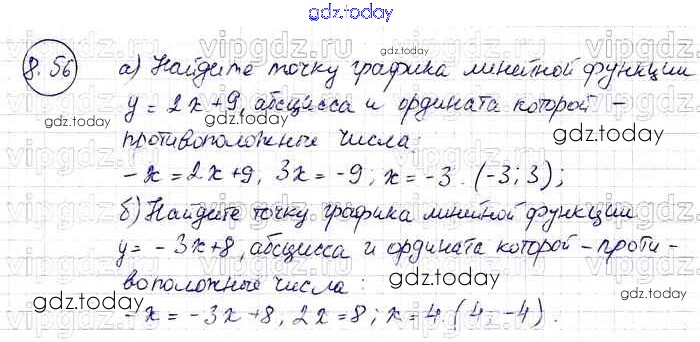 gdz.today
8.56
а) Найдите точку графика линейной функции
y = 2x+9, абсцисса и ордината которой –
gdz.today
gdz.today
противоположные числа:
gdz.today
-x = 2x+9, 3x = -9; x = -3. (-3; 3);
б) Найдите точку графика линейной функции
y = -3x+8, абсцисса и ордината которой – проти-
воположные числа:
gdz.today
gdz.today
-x = -3x+8, 2x = 8; x = 4. (4; -4).